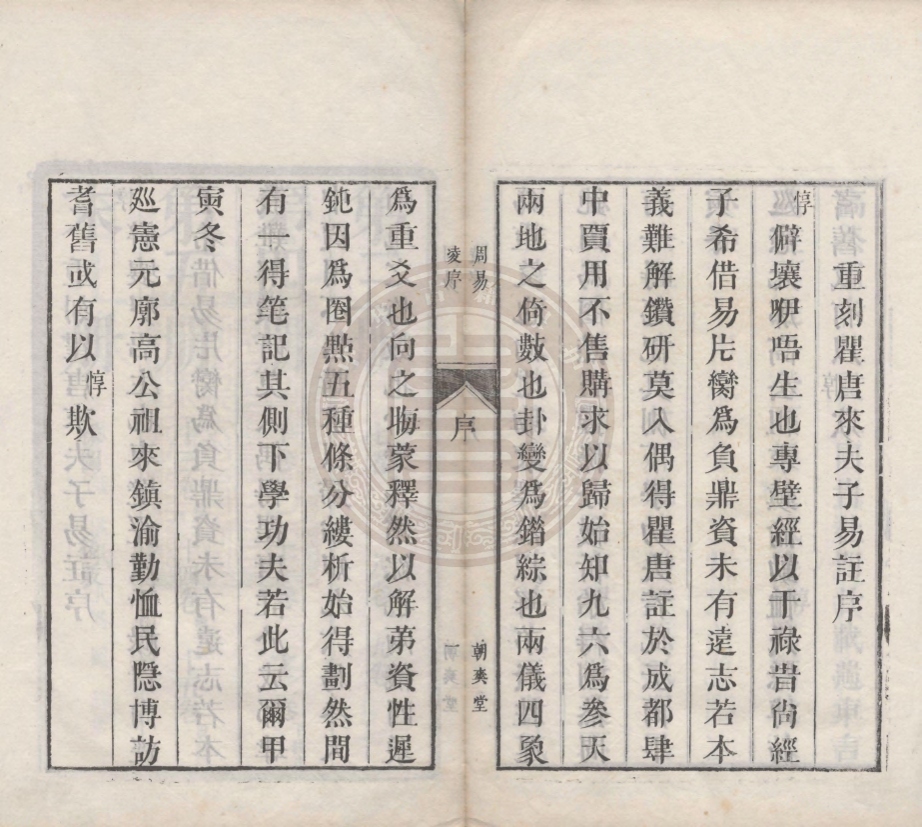 重刻瞿唐來夫子易註序
惇僻壤咿唔生也專壁經以干祿昔尙經
子希借易片臠爲負鼎資未有遠志若本
義難解鑽研莫入偶得瞿唐註於成都肆
中賈用不售購求以歸始知九六爲參天
兩地之倚數也卦變爲錯綜也兩儀四象
周易
凌序
序
朝爽堂
爲重爻也向之塒蒙釋然以解苐資性遲
鈍因爲圈㸃五種條分縷析始得劃然間
有一得筆記其側下學功夫若此云爾甲
寅冬
廵憲元廓高公祖來鎮渝勤恤民隱博訪
耆舊或有以惇欺